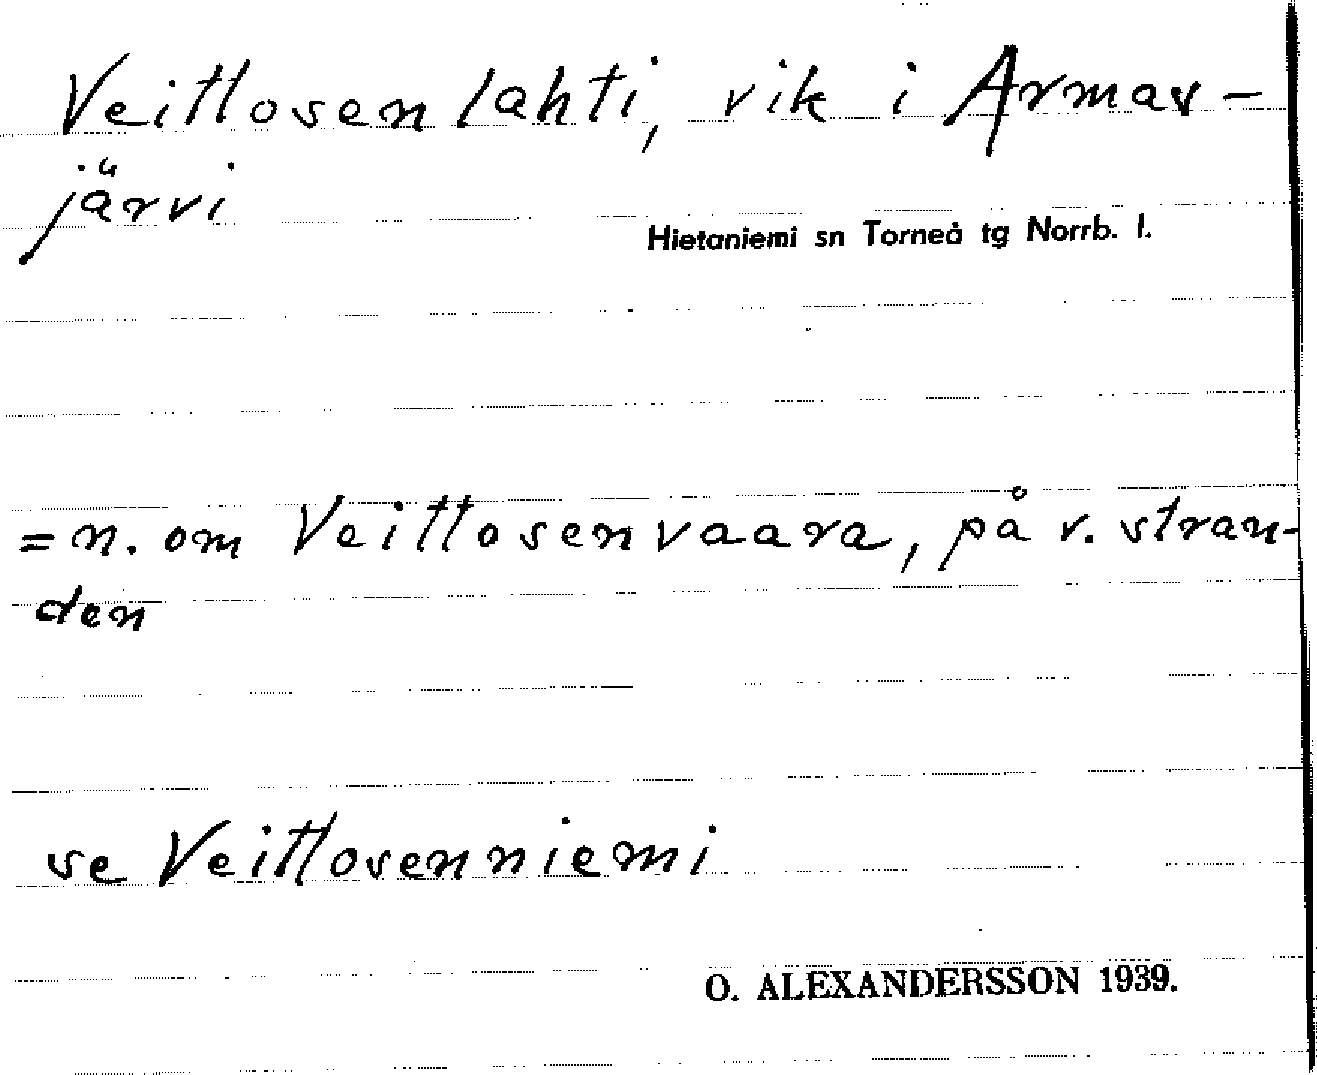 Veittosenlahti, vik i Armas-
järvi
Hietaniemi sn Torneå tg Norrb. l.
= n. om Veittosenvaara, på v. stran-
den
se Veittosenniemi
O. ALEXANDERSSON 1939.